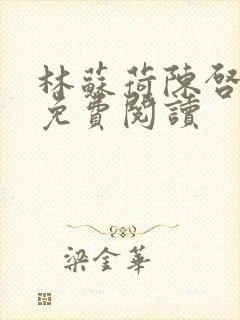 林蘇荷陳啓
免費閱讀
梁金華